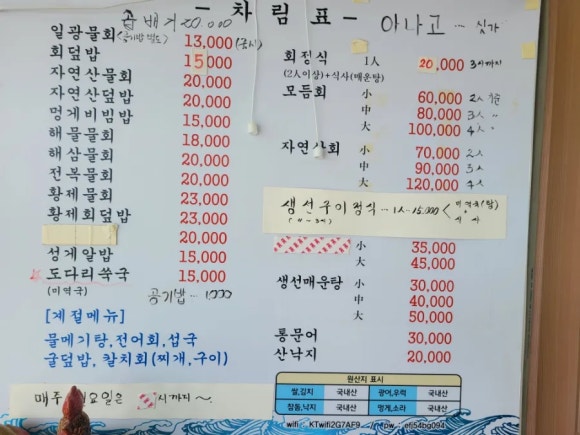 - 차림표 -
곰배기 20.000
아나고 ... 싯가
일광물회 13,000 (공시)
(공기밥 별도)
회덮밥 15,000
자연산물회 20,000
자연산덮밥 20,000
멍게비빔밥 15,000
해물물회 18,000
해삼물회 20,000
전복물회 20,000
황제물회 23,000
황제회덮밥 23,000
20,000
성게알밥 15,000
도다리쑥국 15,000
(미역국)
공기밥 - 1,000
[계절메뉴]
물메기탕,전어회,섭국
굴덮밥, 칼치회(찌개,구이)
매주 요일은 시까지 ~.
회정식 1人 20,000 3시까지
(2人이상)+식사(매운탕)
모듬회 小 60,000 2人
中 80,000 3人 〃
大 100,000 4人 〃
자연산회 小 70,000 2人
中 90,000 3人
大 120,000 4人
생선구이정식 - 1人 - 15,000 < 미역국(탕)
+
식사
(11 - 3시)
小 35,000
大 45,000
생선매운탕 小 30,000
中 40,000
大 50,000
통문어 30,000
산낙지 20,000
원산지 표시
쌀,김치 국내산 광어,우럭 국내산
참돔,낙지 국내산 멍게,소라 국내산
wifi : KTwifi2G7AF9 pw : efi54bg094